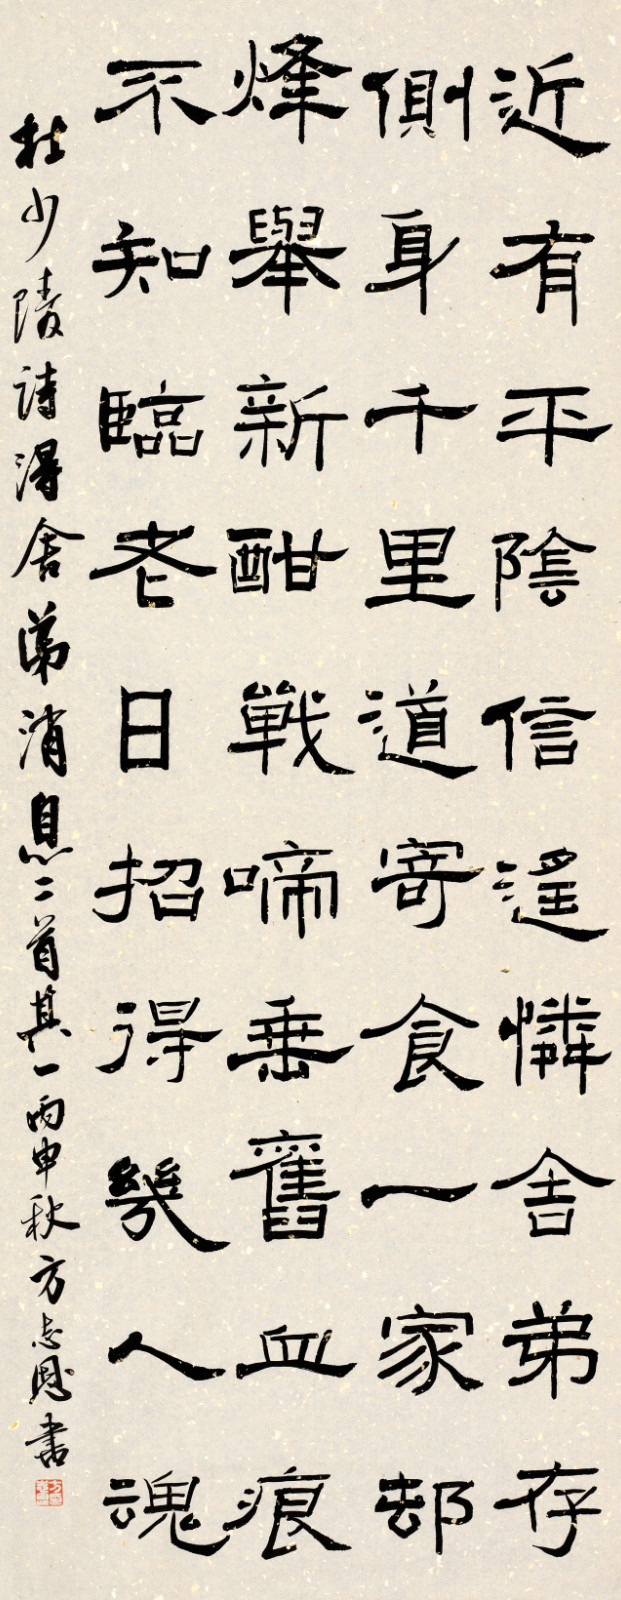 近有平陰信遙憐舍弟存
側身千里道寄食一家邨
烽舉新酣戰啼垂舊血痕
不知臨老日招得幾人魂
杜少陵詩得舍弟消息二首其一丙申秋方志恩書